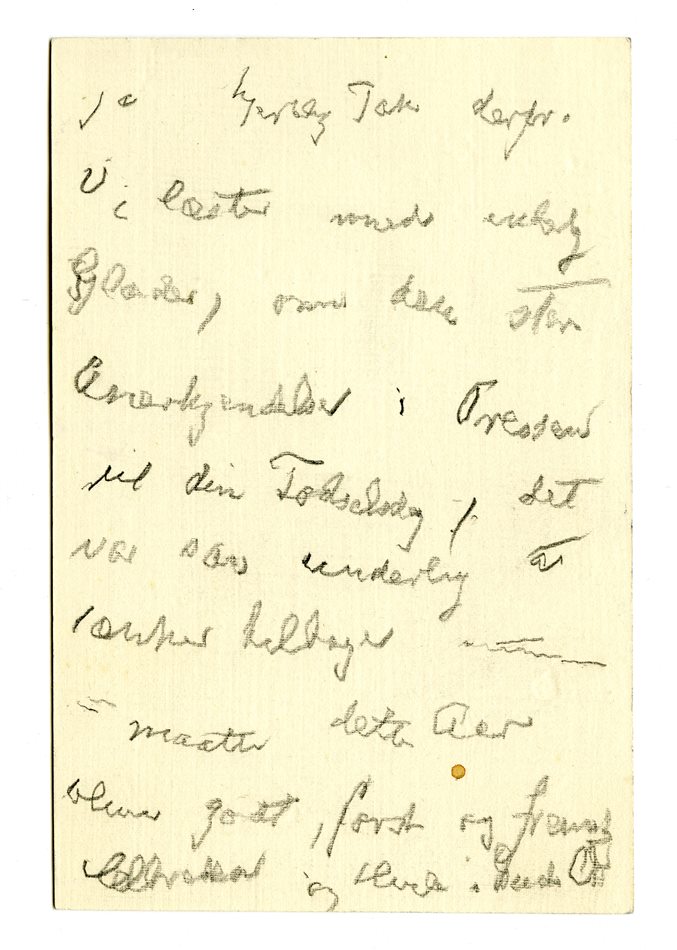 ja hjertelig Tak derfor.
Vi læste med
Glæde, om den store
Anerkjendelse i Pressen
til din Fødselsdag, det
var saa underlig at
tænke tilbage
maatte dette Aar
blive godt, først og fremst
og